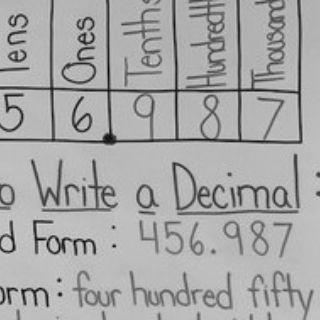 Tens Ones Tenths Hundredth Thousand
5 6 . 9 8 7
o Write a Decimal :
d Form : 456.987
orm : four hundred fifty